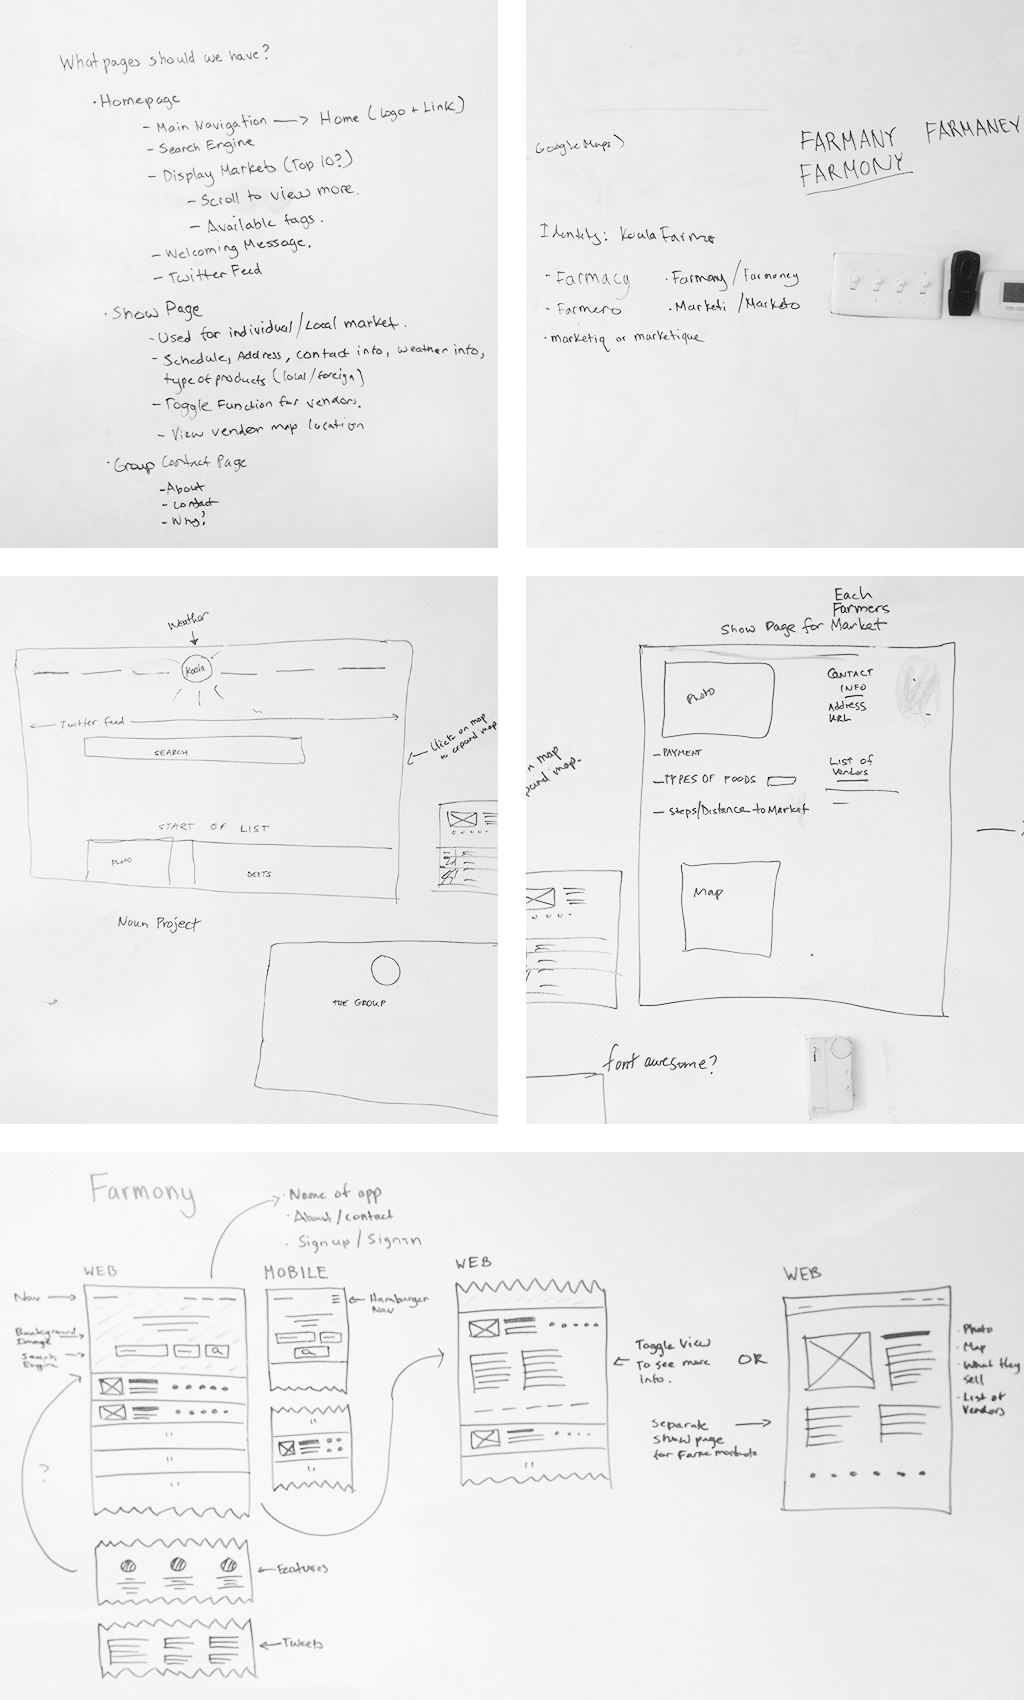 What pages should we have?
· Homepage
- Main Navigation → Home (Logo + Link)
- Search Engine
- Display Markets (Top 10?)
- Scroll to view more.
- Available tags.
- Welcoming Message.
- Twitter Feed
· Show Page
- Used for individual/Local market.
- Schedule, Address, contact info, weather info,
type of products (local/foreign)
- Toggle Function for vendors.
- View vendor map location
· Group Contact Page
- About
- Contact
- Why?
Google Maps)
FARMANY FARMANEY
FARMONY
Identity: Koala Farmer
- Farmacy · Farmony/Farmoney
- Farmero · Marketi/Marketo
· marketiq or marketique
Weather
Koala
Twitter feed
SEARCH
Click on map
to expand map
START OF LIST
Photo
DEETS
Noun Project
THE GROUP
Each
Farmers
Show Page for Market
Photo
CONTACT
INFO
Address
URL
- PAYMENT
- TYPES OF FOODS
- Steps/Distance to Market
List of
Vendors
n map
pand map.
Map
font awesome?
Farmony
· Name of app
· About/contact
· Sign up/Sign in
WEB
MOBILE
WEB
WEB
Nav
Background
Image
Search
Engine
Hamburger
Nav
Toggle View
To see more
Info.
OR
Separate
show page
for Farmers markets
· Photo
· Map
· What they
sell
· List of
Vendors
?
Features
Tweets